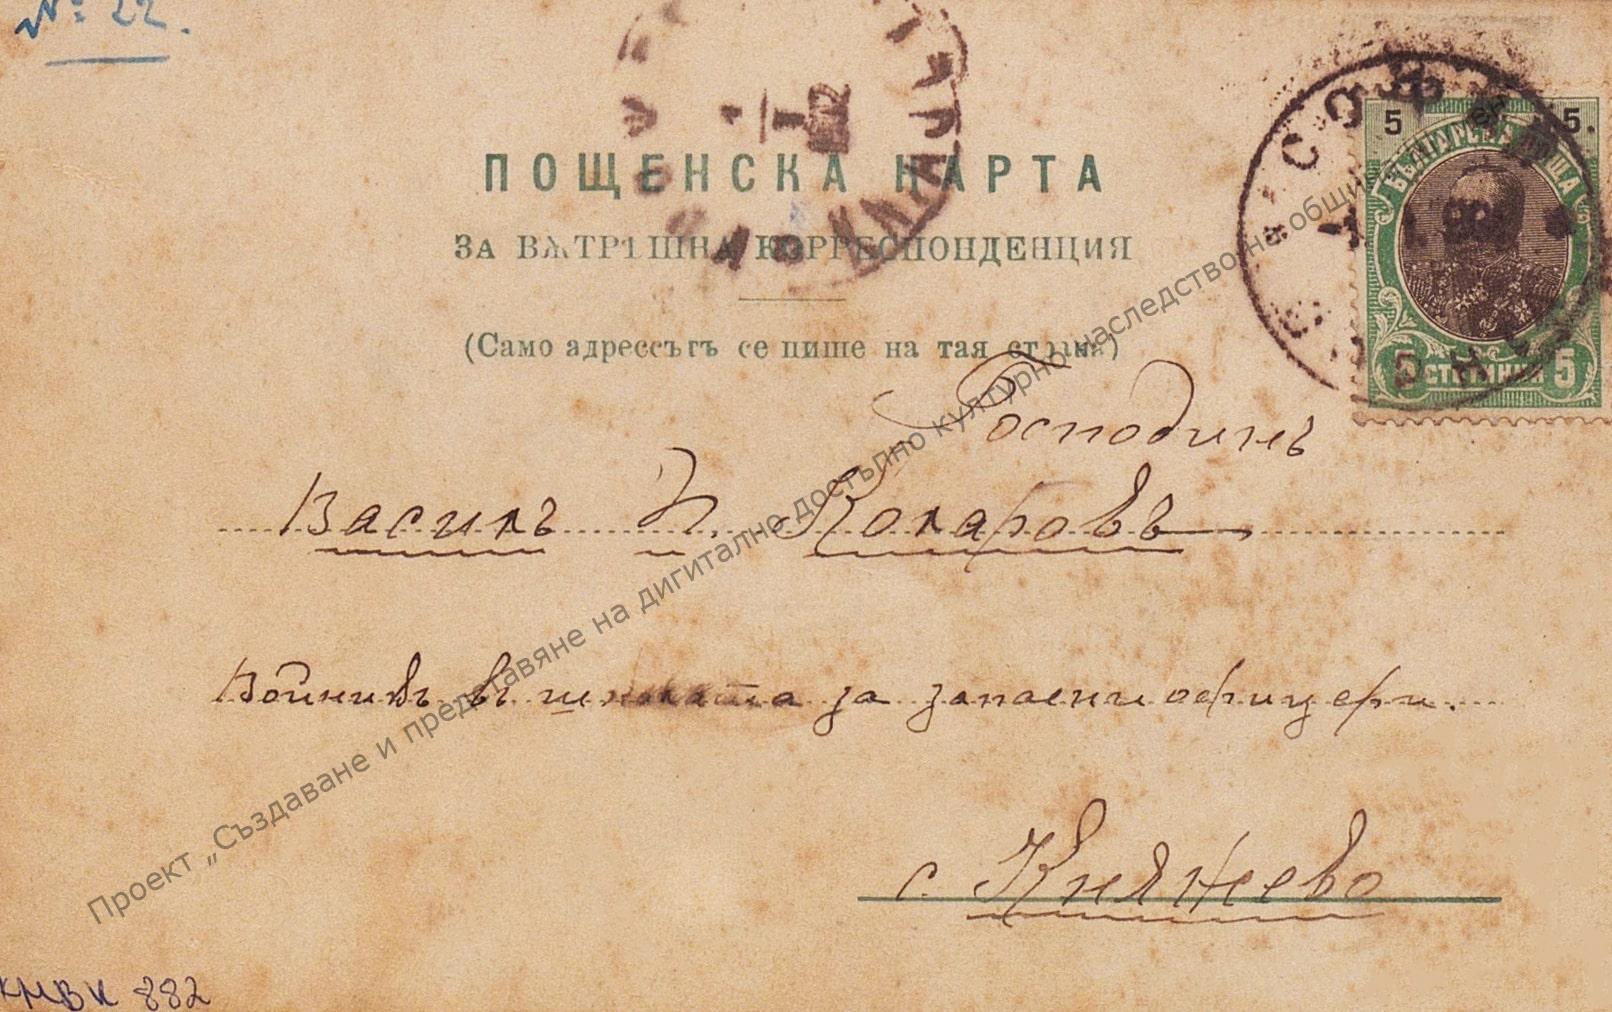 № 22.
1
I
ПОЩЕНСКА КАРТА
ЗА ВѪТРѢШНА КОРРЕСПОНДЕНЦИЯ
(Само адрессътъ се пише на тая страна)
5 5.
БЪЛГАРСКА ПОЩА
5 СТОТИНКИ 5
СОФИЯ
Господинъ
Василъ П. Коларовъ
Войникъ въ школата за запасни офицери.
с. Княжево
КМВК 882
Проект „Създаване и представяне на дигитално достъпно културно наследство на общи